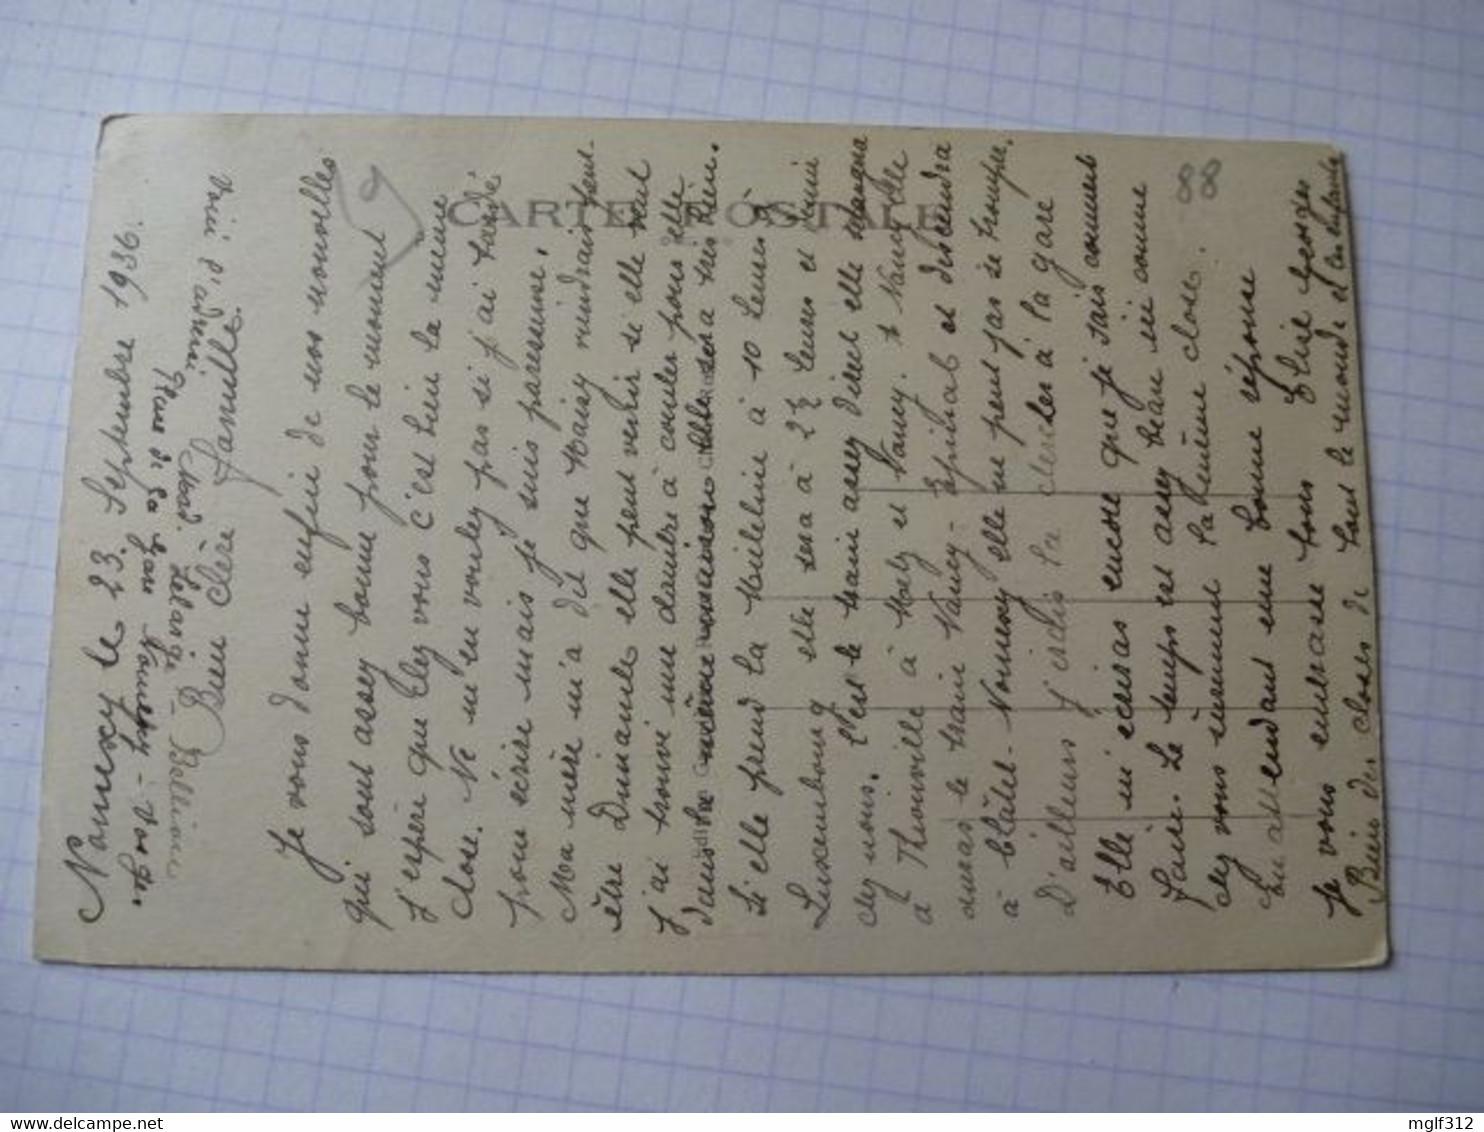 Nomexy le 23 Septembre 1936.
Voici l'adresse
Rue de la Gare Nomexy - Vosges
Bien Chère Famille
Je vous donne enfin de nos nouvelles
qui sont assez bonne pour le moment
j'espère que chez vous c'est bien la même
chose. Ne m'en voulez pas si j'ai tardé
pour écrire mais je suis paresseuse.
Ma mère m'a dit que Maisy viendrait peut-
être Dimanche elle peut venir si elle veut
j'ai trouvé une chambre à coucher pour elle
dans la même maison elle sera très bien.
Si elle prend la Micheline à 10 heures à
Luxembourg elle sera à 2 h heures et demi
chez nous. C'est le train assez direct elle changera
à Thionville à Metz et Nancy. à Nancy elle
aura le train Nancy - Epinal et descendra
à Châtel-Nomexy elle ne peut pas se tromper.
D'ailleurs j'irais la chercher à la gare
Elle m'écriras encore que je sais comment
faire. Le temps est assez beau ici comme
chez vous sûrement la même chose.
En attendant une bonne réponse
Je vous embrasse tous Elise Georges
Bien des choses de tout le monde et les enfants
CARTE POSTALE
88
mglf312